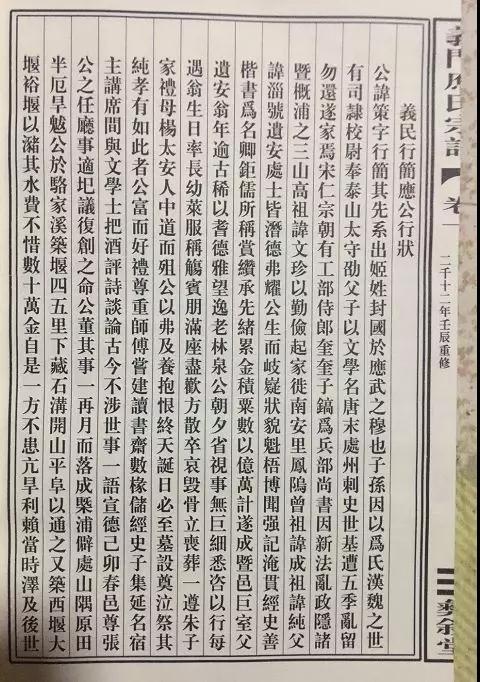 義門應氏宗譜 卷一
二千十二年壬辰重修
義民行簡應公行狀
公諱策字行簡其先系出姬姓封國於應武之穆也子孫因以爲氏漢魏之世
有司隷校尉奉泰山太守劭父子以文學名唐末處州刺史世基遭五季亂留
勿還遂家焉宋仁宗朝有工部侍郎奎奎子鎬爲兵部尚書因新法亂政隱諸
暨概浦之三山高祖諱文珍以勤儉起家徙南安里鳳鴿曾祖諱成祖諱純父
諱淄號遺安處士皆潛德弗耀公生而岐嶷狀貌魁梧博聞强記淹貫經史善
楷書爲名卿鉅儒所稱賞纘承先緒累金積粟數以億萬計遂成暨邑巨室父
遺安翁年逾古稀以耆德雅望逸老林泉公朝夕省視事無巨細悉咨以行每
遇翁生日率長幼萊服稱觴賓朋滿座盡歡方散卒哀毀骨立喪葬一遵朱子
家禮母楊太安人中道而殂公以弗及養抱恨終天誕日必至墓設奠泣祭其
純孝有如此者公富而好禮尊重師傅嘗建讀書齋數椽儲經史子集延名宿
主講席間與文學士把酒評詩談論古今不涉世事一語宣德己卯春邑尊張
公之任廳事適圮議復創之命公董其事一再月而落成槩浦僻處山隅原田
半厄旱魃公於駱家溪築堰四五里下藏石溝開山平阜以通之又築西堰大
堰裕堰以瀦其水費不惜數十萬金自是一方不患亢旱利賴當時澤及後世